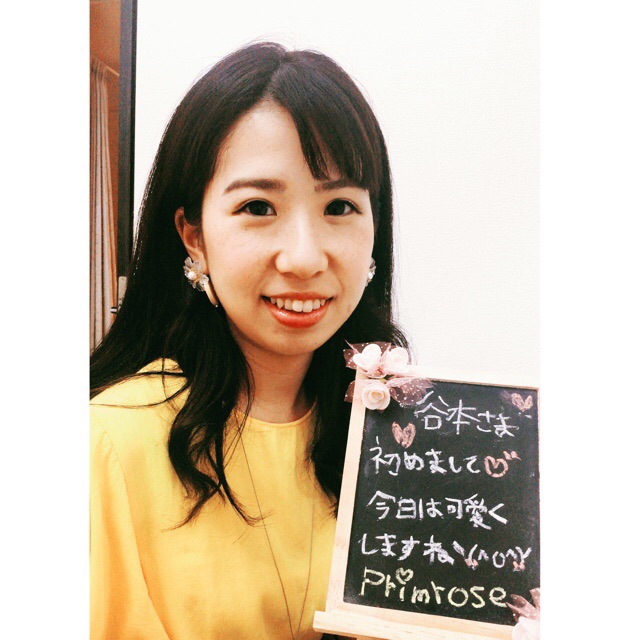 谷本さま
初めまして♡
今日は可愛く
しますね\(^o^)/
Primrose